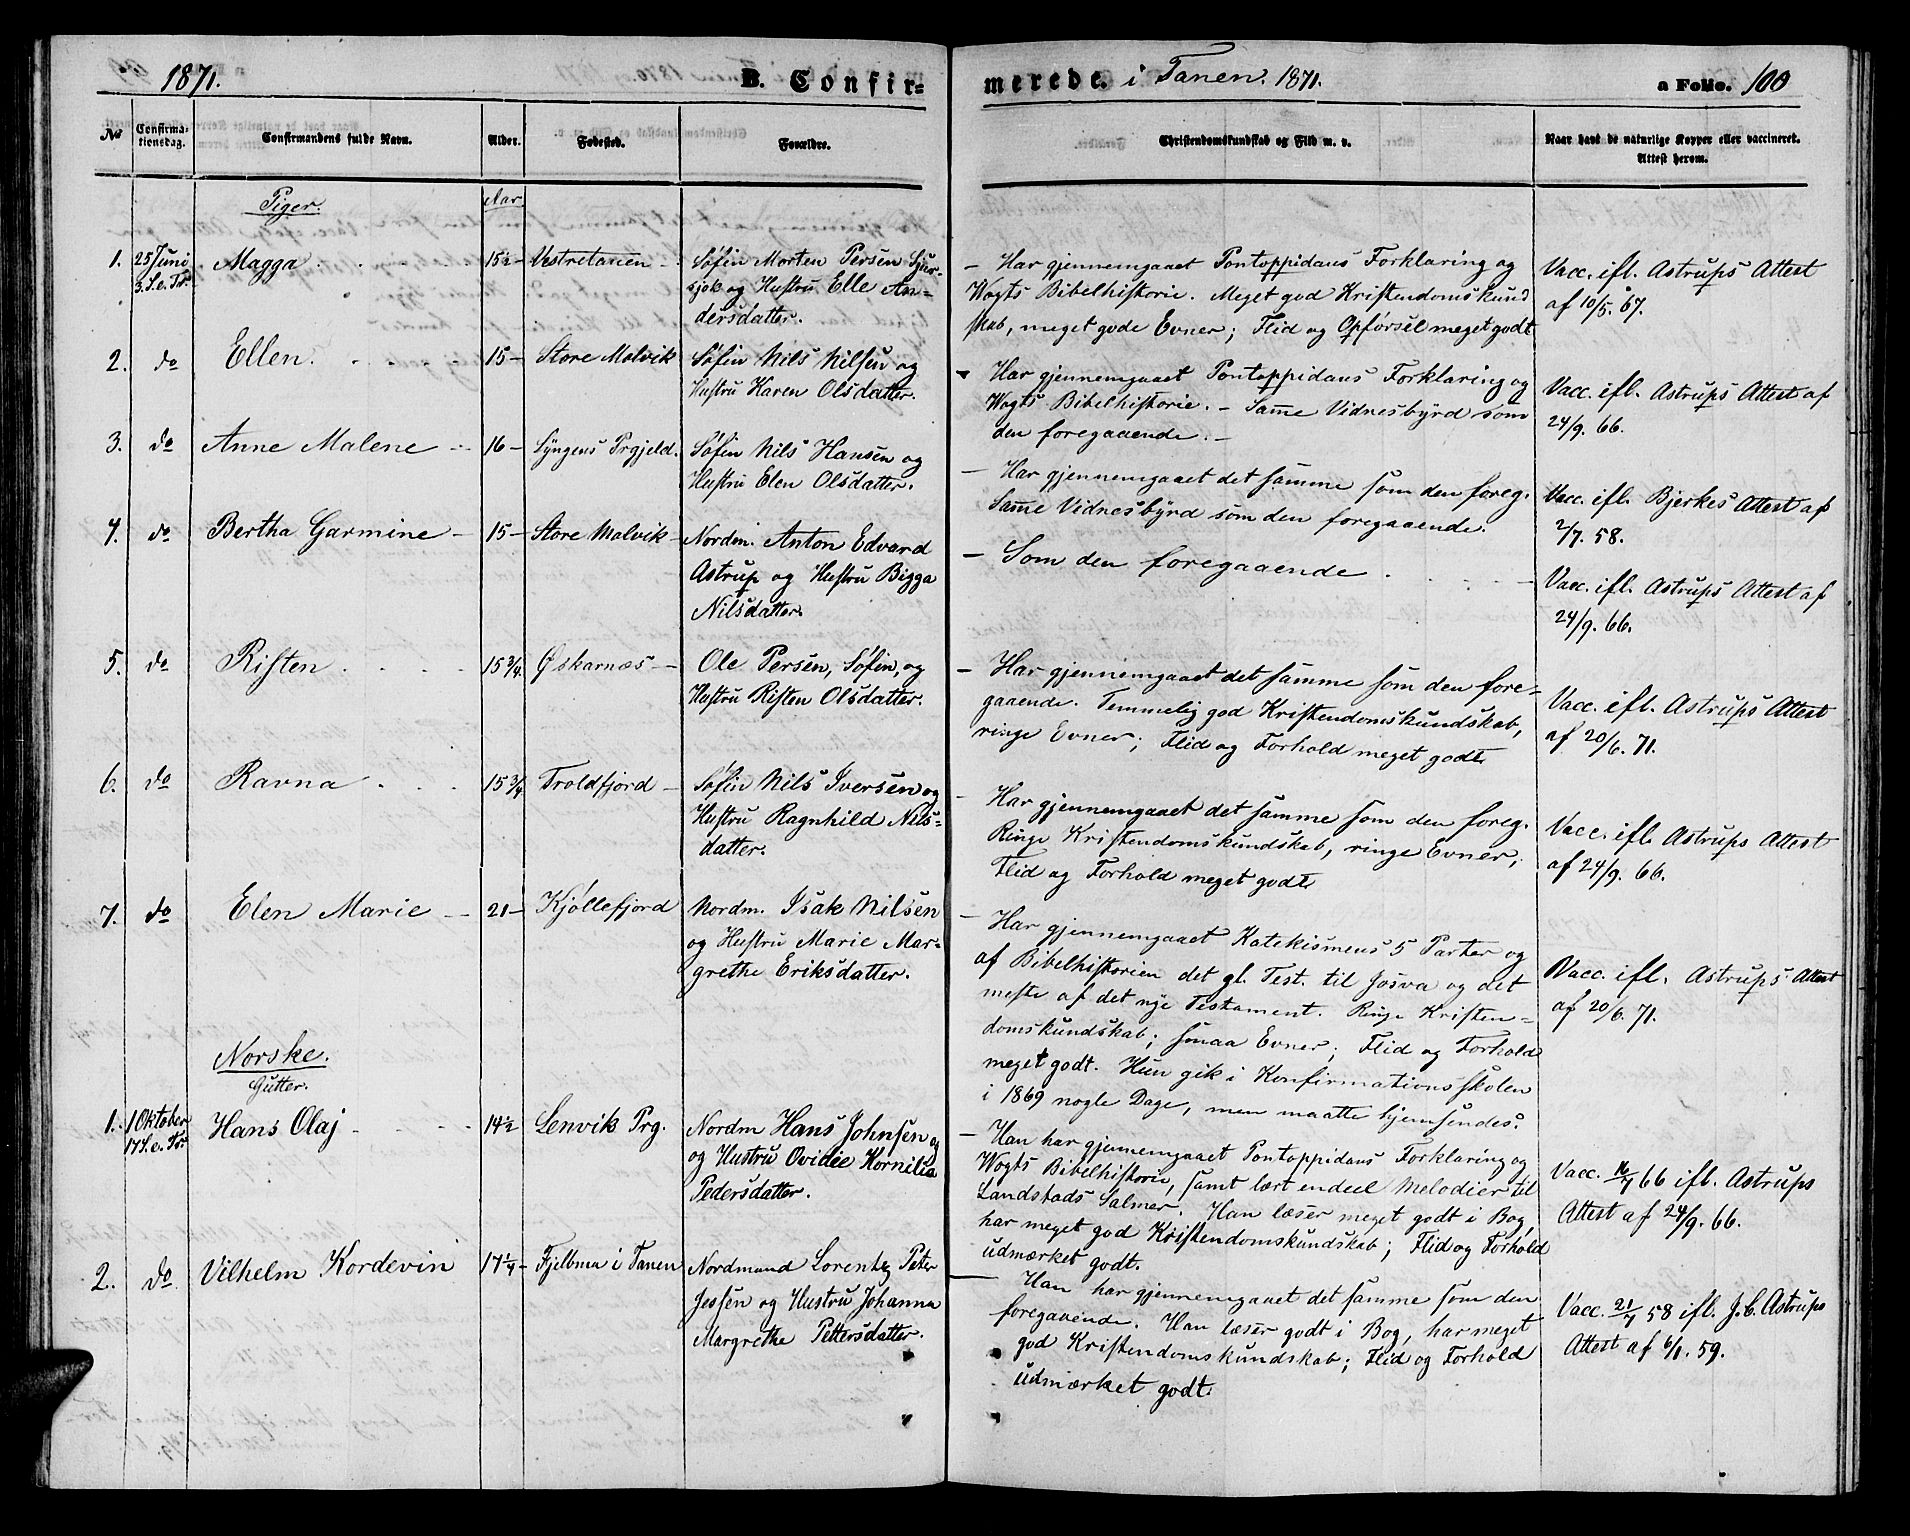 1871.
B. Confir-
No
Confirma-
tionsdag.
Confirmandens fulde Navn.
Alder.
Fødested.
Forældre.
Piger.
Aar.
1. 25 Juni Magga 15½ Vestretanen Søfin Morten Persen
3. S. e. Tr. sjok og Hustru Elle An-
dersdatter.
2. do Ellen. 15 Store Molvik Søfin Nils Nilsen og
Hustru Karen Olsdatter.
3. do Anne Malene 16 Lyngens Prgjeld. Søfin Nils Hansen og
Hustru Elen Olsdatter.
4. do Bertha Garmine 15 Store Molvik Nordm. Anton Edvard
Astrup og Hustru Bigga
Nilsdatter.
5. do Risten 15¾ Øskarnæs Ole Persen, Søfin, og
Hustru Risten Olsdatter.
6. do Ravna 15¾ Troldfjord Søfin Nils Iversen og
Hustru Ragnhild Nils-
datter.
7. do Elen Marie 21 Kjøllefjord Nordm. Isak Nilsen
og Hustru Marie Mar-
grethe Eriksdatter.
Norske.
Gutter.
1. 1 Oktober Hans Olaj 14½ Lenvik Prg. Nordm Hans Johnsen og
17 S. e. Tr. og Hustru Ovidie Kornilia
Pedersdatter.
2. do. Vilhelm Kordevin 17¼ Fjelbma i Tanen Nordmand Lorentz Peter
Jessen og Hustru Johanna
Margrethe Pettersdatter.
merede. i Tanen. 1871.
a Folio. 100
Christendomskundskab og Flid m. v.
Naar havt de naturlige Kopper eller vaccineret.
Attest herom.
- Har gjennemgaaet Pontoppidans Forklaring og
Vogts Bibelhistorie. Meget god Kristendomskund
skab, meget gode Evner; Flid og Opførsel meget godt
Vacc. ifl. Astrups Attest
af 10/5. 67.
- Har gjennemgaaet Pontoppidans Forklaring og
Vogts Bibelhistorie. - Samme Vidnesbyrd som
den foregaaende. -
Vacc. ifl. Astrups Attest af
24/9. 66.
- Har gjennemgaaet det samme som den foreg.
Samme Vidnesbyrd som den foregaaende.
Vacc. ifl. Bjerkes Attest af
2/7. 58.
- Som den foregaaende
Vacc. ifl. Astrups Attest af
24/9. 66.
- Har gjennemgaaet det samme som den fore-
gaaende. Temmelig god Kristendomskundskab,
ringe Evner; Flid og Forhold meget godt.
Vacc. ifl. Astrups Attest
af 20/6. 71.
- Har gjennemgaaet det samme som den foreg.
Ringe Kristendomskundskab, ringe Evner,
Flid og Forhold meget godt.
Vacc. ifl. Astrups Attest
af 24/9. 66.
- Har gjennemgaaet Katekismens 5 Parter og
af Bibelhistorien det gl. Test. til Josva og det
meste af det nye Testament. Ringe Kristen-
domskundskab; smaa Evner; Flid og Forhold
meget godt. Hun gik i Konfirmationsskolen
i 1869 nogle Dage, men maatte hjemsendes.
Vacc. ifl. Astrups Attest
af 20/6. 71.
- Han har gjennemgaaet Pontoppidans Forklaring og
Vogts Bibelhistorie, samt lært endeel Melodier til
Landstads Salmer. Han læser meget godt i Bog,
har meget god Kristendomskundskab; Flid og Forhold
udmærket godt.
Vacc. 16/7 66 ifl. Astrups
Attest af 24/9. 66.
- Han har gjennemgaaet det samme som den
foregaaende. Han læser godt i Bog, har meget
god Kristendomskundskab; Flid og Forhold
udmærket godt.
Vacc. 21/7 58 ifl. J. C. Astrups
Attest af 6/1. 59.